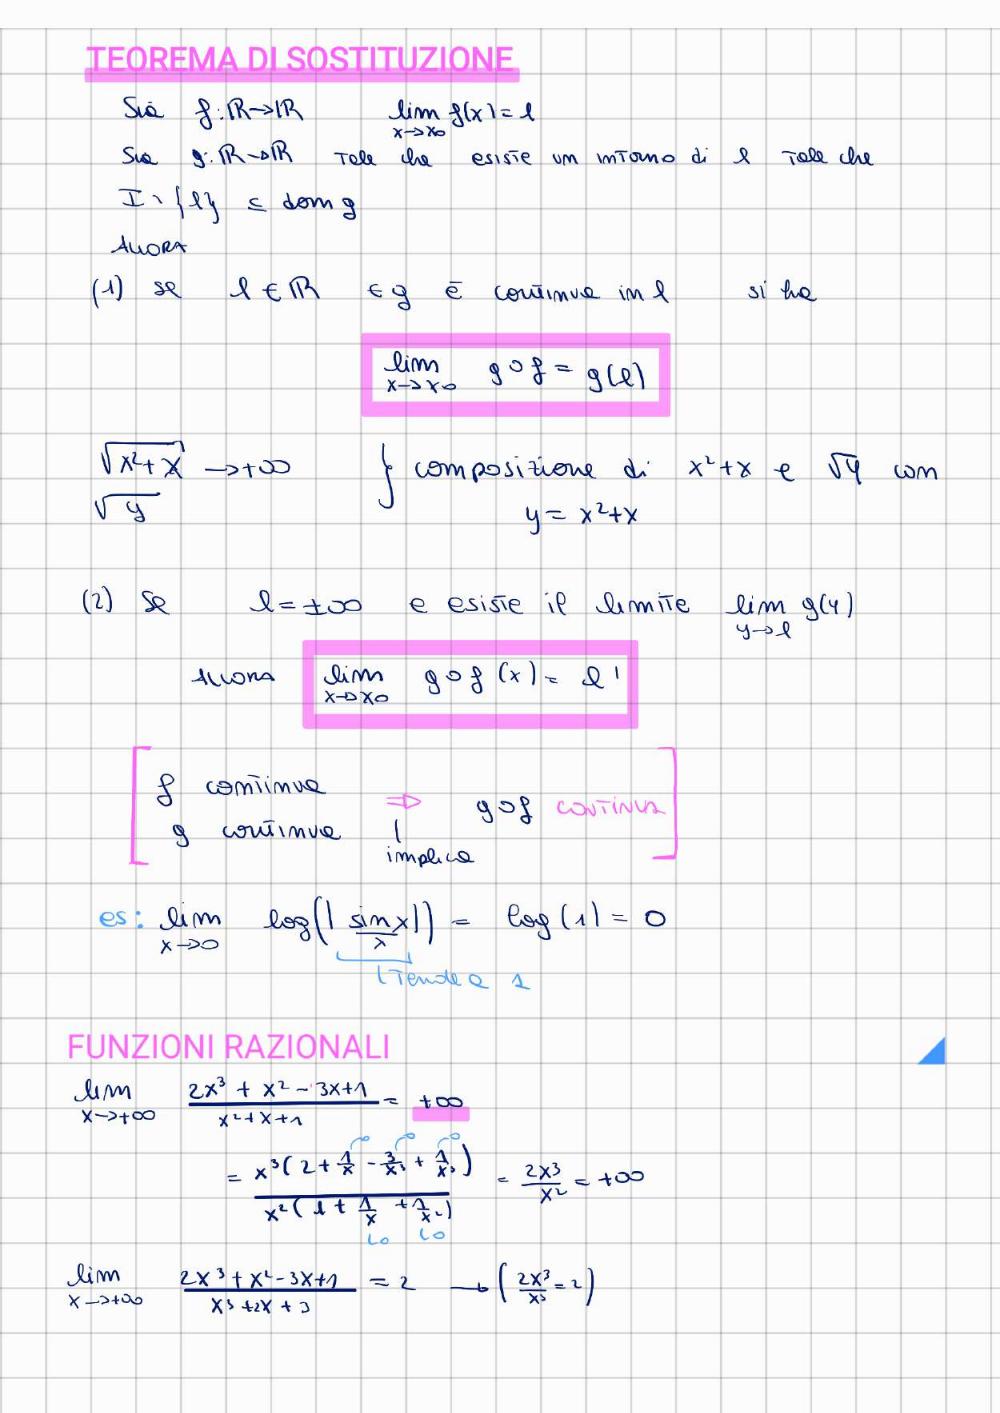 TEOREMA DI SOSTITUZIONE
Sia f: ℝ→ℝ lim x→x₀ f(x) = l
Sia g: ℝ→ℝ tale che esiste un intorno di l tale che
I∖{l} ⊆ dom g
ALLORA
(1) se l ∈ ℝ e g é continua in l si ha
lim x→x₀ g∘f = g(l)
√(x²+x) → +∞ } composizione di x²+x e √y con
√y y = x²+x
(2) Se l = ±∞ e esiste il limite lim y→l g(y)
ALLORA lim x→x₀ g∘f (x) = l'
[ f continua
g continua ⇒ g∘f CONTINUA ]
implica
es: lim x→0 log(|sinx/x|) = log(1) = 0
Tende a 1
FUNZIONI RAZIONALI
lim x→+∞ (2x³ + x² - 3x + 1)/(x² + x + 1) = +∞
= x³(2 + 1/x - 3/x³ + 1/x³)/x²(1 + 1/x + 1/x²) = 2x³/x² = +∞
0 0 0
0 0
lim x→+∞ (2x³ + x² - 3x + 1)/(x³ + 2x + 3) = 2 → (2x³/x³ = 2)